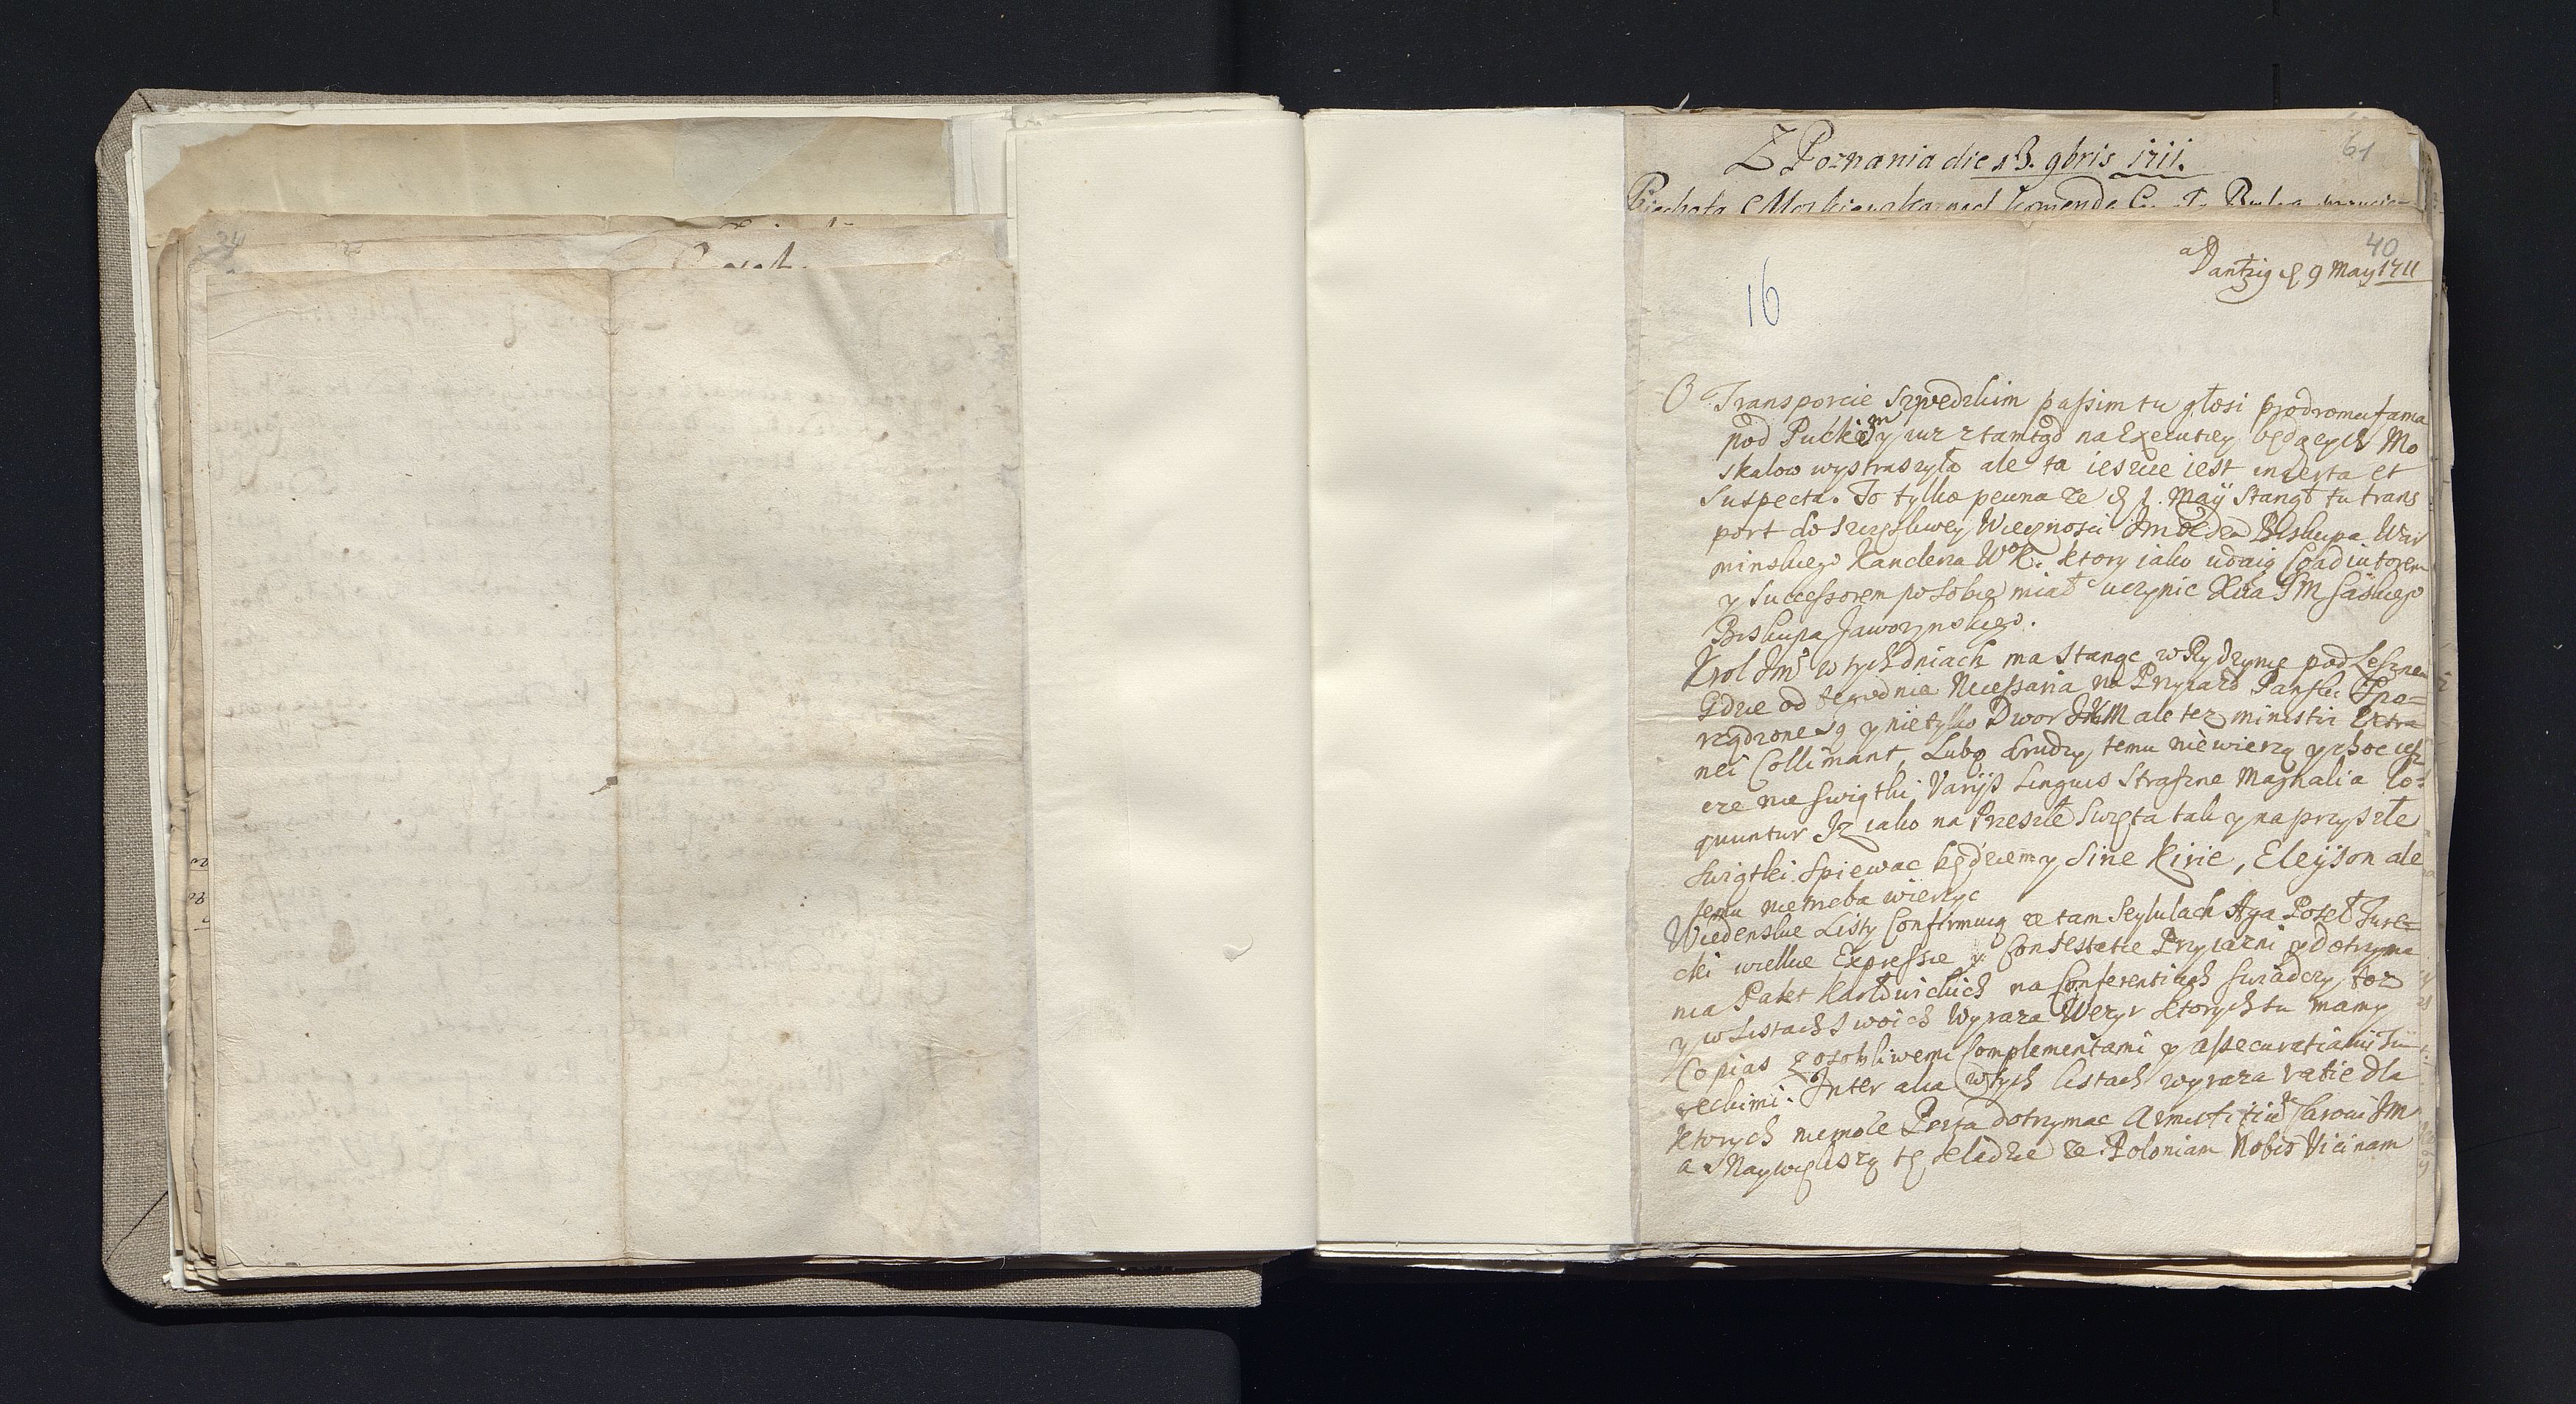 61
Z Poznania die 13. 9bris 1711.
Piechota Moskiewska pod komendą
40
a Dantzig d 9 May 1711
16
O Transporcie Szwedzkim passim tu głosi prodroma fama
pod Puckiem y iuz ztamtąd na Executiey będących Mo
skalow wystraszyła ale ta ieszcze iest incerta et
Suspecta. To tylko pewna ze d 1. Maÿ Stanął tu trans
port do Szczęsliwey Wiecznosci Biskupa War
minskiego Kanclerza WK. ktory iako udaią Coadiutorem
y Successorem po sobie miał uczynic Xcia JM Saskiego
Biskupa Jaworynskiego.
Krol Jmc w tych dniach ma Stanąc w Rydzynie pod Lesznem
Gdzie od tegodnia Necessaria na Przyiazd Panski Spo=
rządzone są y nie tylko Dwor JKM ale tez ministri Extra
nei Collimant, Lubo drudzy temu niewierzą y choc iesz
cze nie swiątki Varÿs Linguis Straszne Magnalia lo=
quuntur Iz iako na Przeszłe Swięta tak y na przyszłe
Swiątki Spiewac będziemy Sine Kirie, Eleÿson ale
temu nietrzeba wierzyc
Wiedenskie Listy Confirmuią ze tam Seyfulach Aga Poseł Ture=
cki wielkie Expressie y Contestatie Przyiazni y dotrzyma
nia Pakt Karłowickich na Conferentiach swiadczy toz
y w Listach Swoich Wyraza Wezyr ktorych tu mamy
Copias z osobliwemi Complementami y assecuratiami Tu
reckimi. Inter alia w tych listach wyraza ratie dla
ktorych niemoze Porta dotrzymac Armistitium Carowi JM
a Naywiększą tę kładzie ze Poloniam Nobis Vicinam